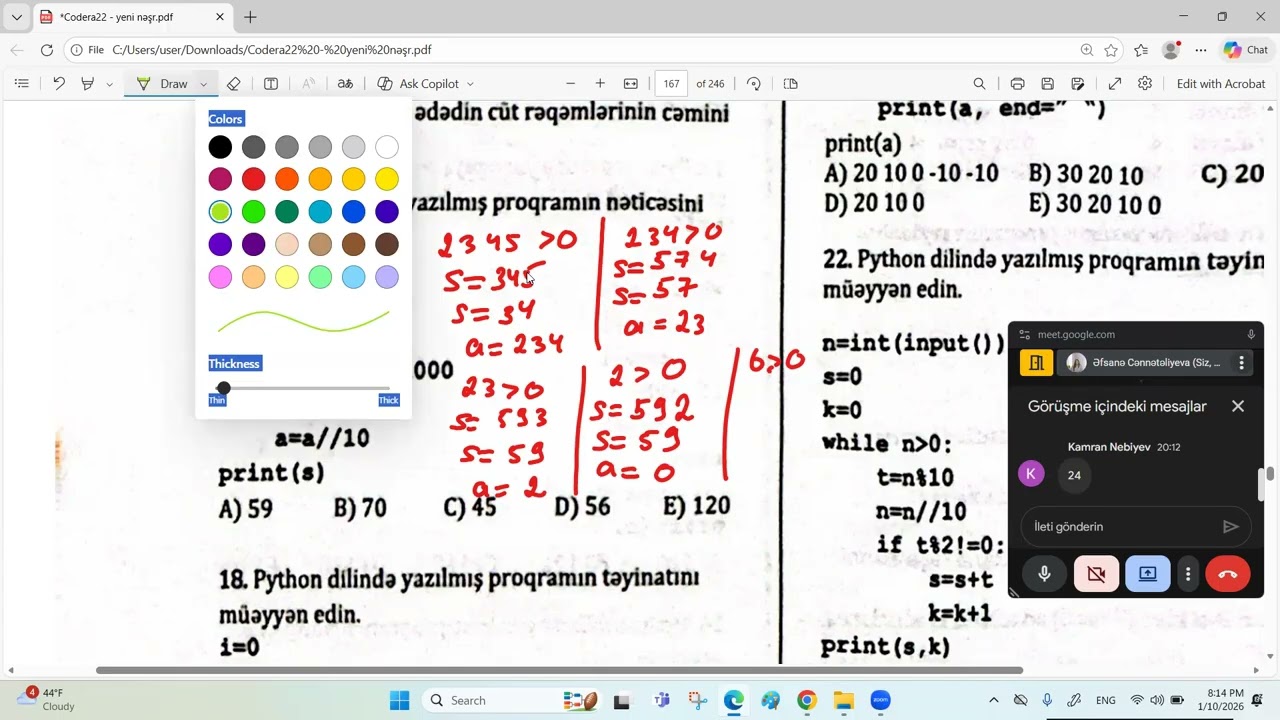 *Codera22 - yeni nəşr.pdf
File
C:/Users/user/Downloads/Codera22%20-%20yeni%20nəşr.pdf
Chat
Draw
Ask Copilot
167
of 246
Edit with Acrobat
Colors
Thickness
Thin
Thick
ədədin cüt rəqəmlərinin cəmini
yazılmış proqramın nəticəsini
2345 >0
s=345
s=34
a=234
234>0
s=574
s=57
a=23
000
23>0
s=593
s=59
a=2
2>0
s=592
s=59
a=0
0>0
a=a//10
print(s)
A) 59
B) 70
C) 45
D) 56
E) 120
18. Python dilində yazılmış proqramın təyinatını
müəyyən edin.
i=0
print(a, end=" ")
print(a)
A) 20 10 0 -10 -10
B) 30 20 10
C) 20
D) 20 10 0
E) 30 20 10 0
22. Python dilində yazılmış proqramın təyin
müəyyən edin.
n=int(input())
s=0
k=0
while n>0:
t=n%10
n=n//10
if t%2!=0:
s=s+t
k=k+1
print(s,k)
meet.google.com
Əfsanə Cənnətəliyeva (Siz, ...
Görüşme içindeki mesajlar
Kamran Nebiyev 20:12
K
24
İleti gönderin
4
44°F
Cloudy
Search
zoom
ENG
8:14 PM
1/10/2026